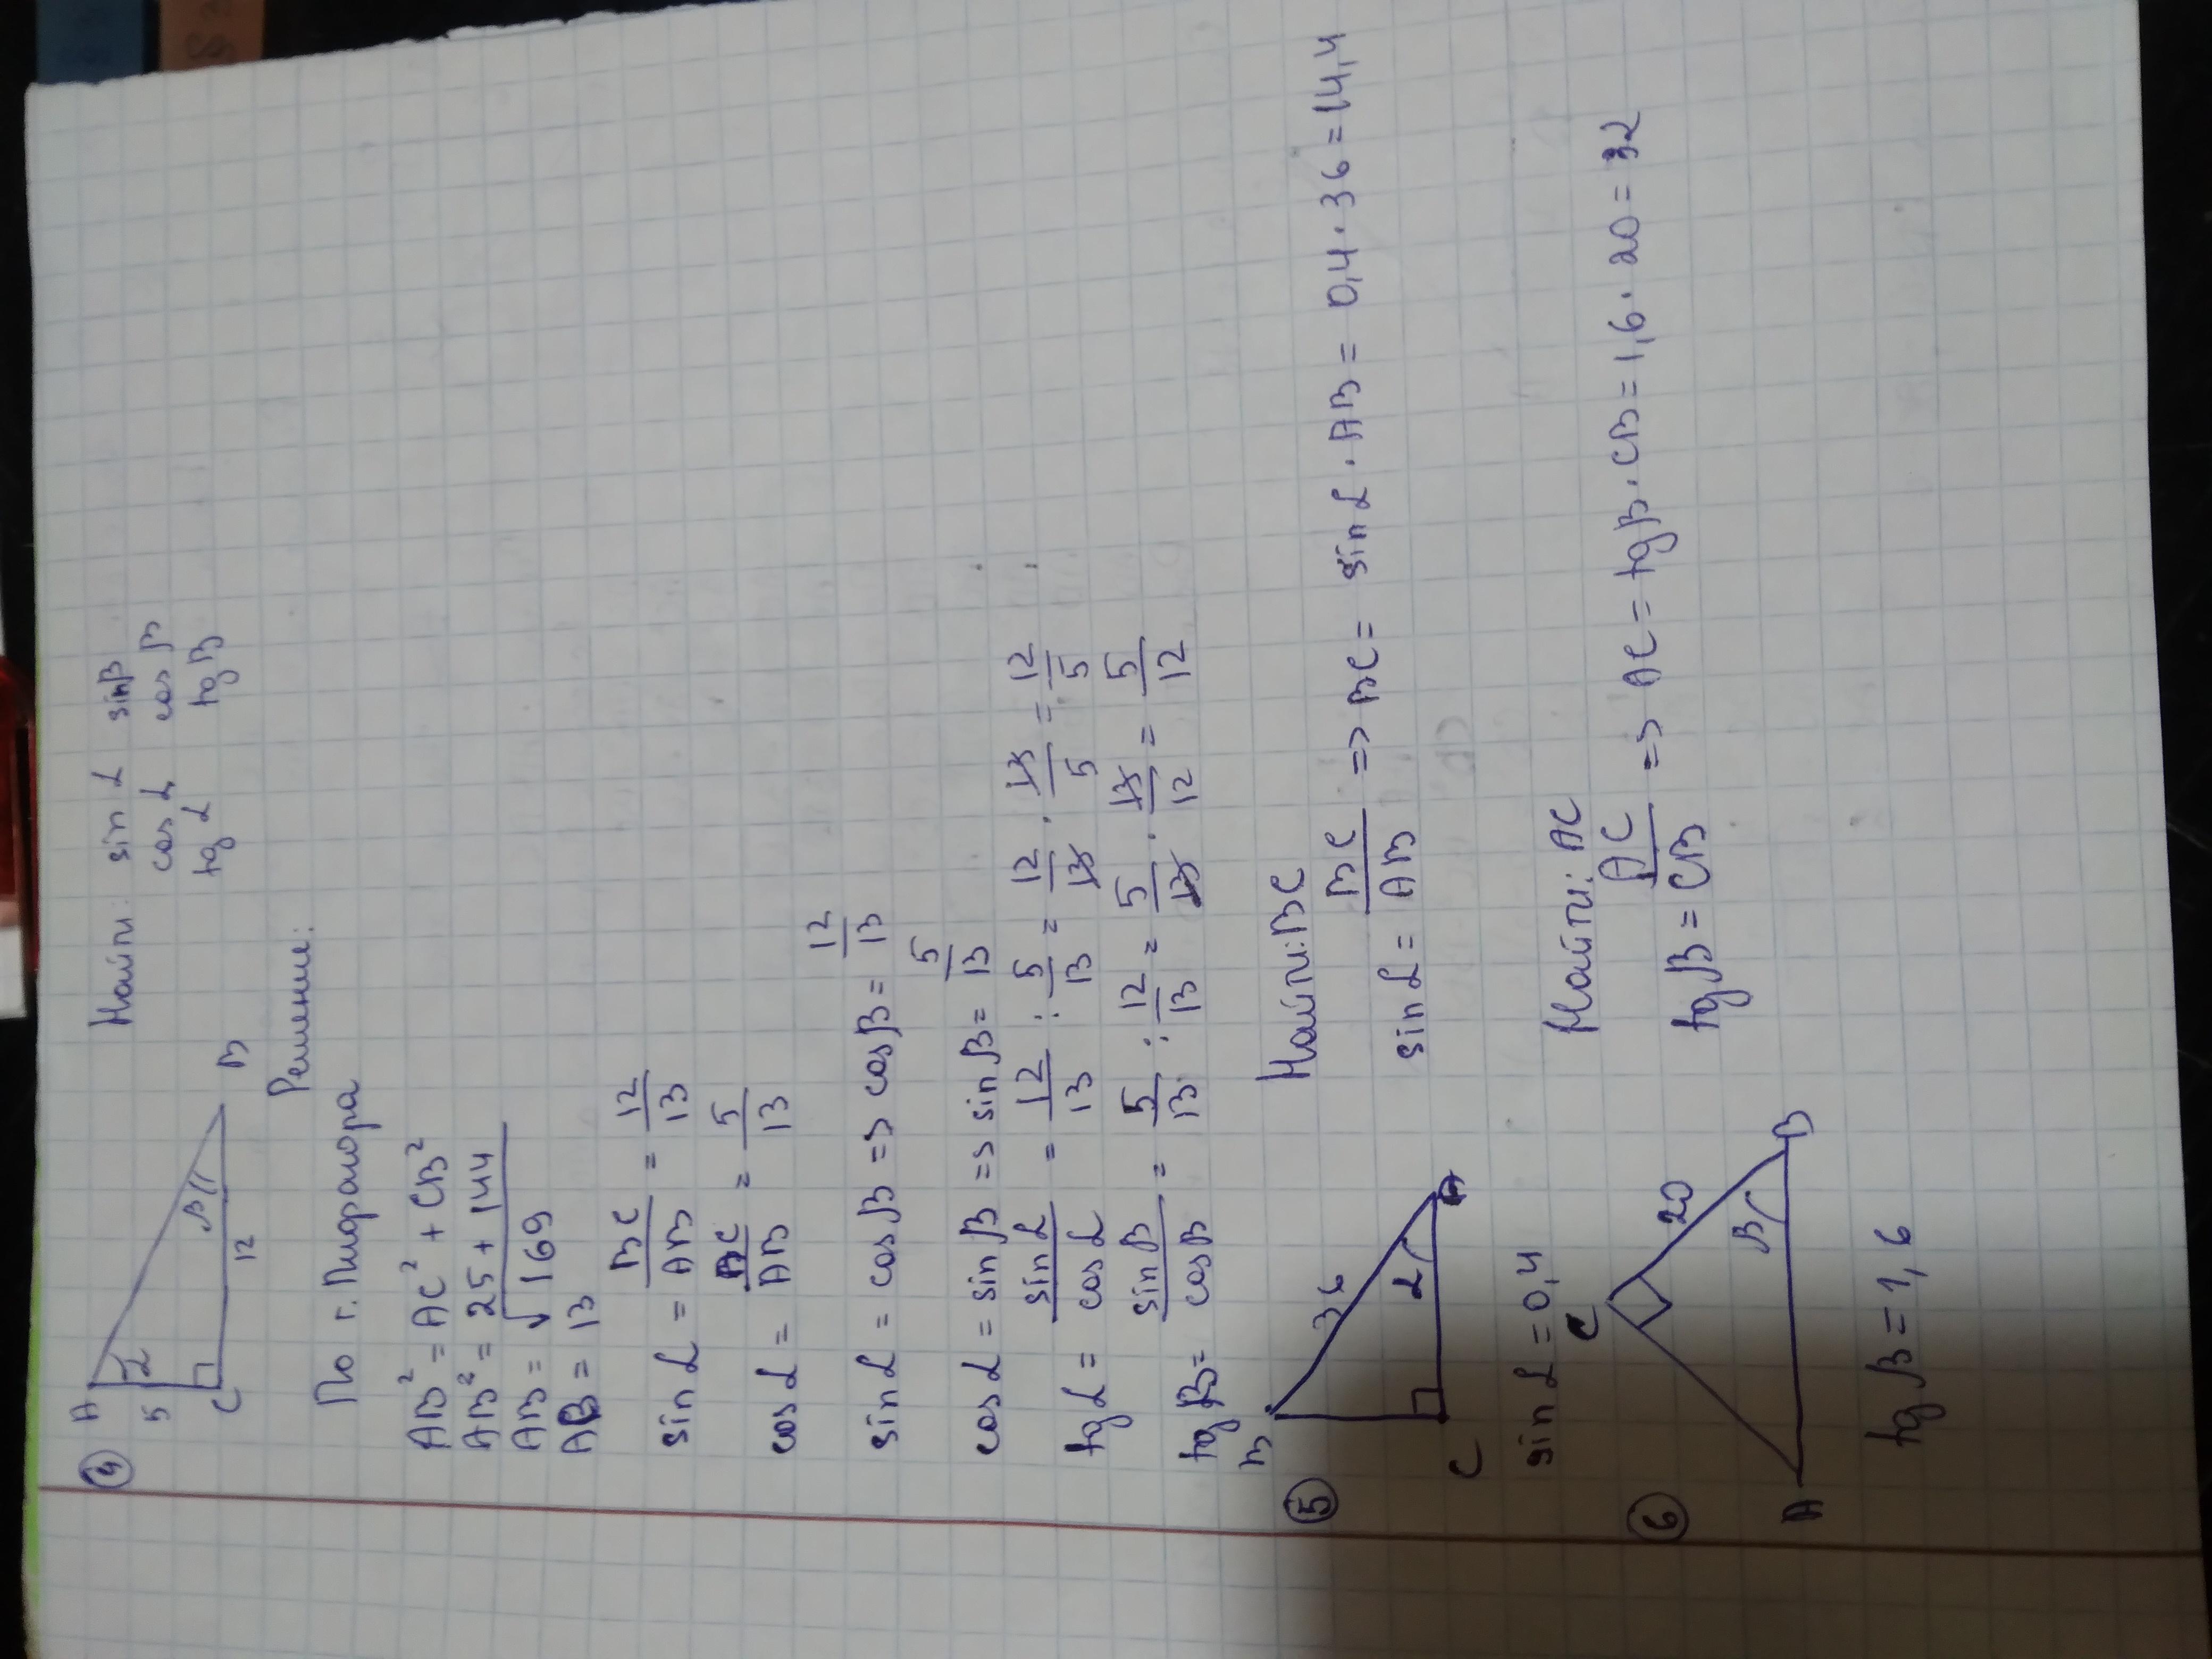 ④ A Найти: sin α sin β
5 α cos α cos β
C 12 β B tg α tg β
Решение:
По т. Пифагора
AB² = AC² + CB²
AB² = 25 + 144
AB = √169
AB = 13
sin α = BC/AB = 12/13
cos α = AC/AB = 5/13
sin α = cos β => cos β = 12/13
cos α = sin β => sin β = 5/13
tg α = sin α/cos α = 12/13 : 5/13 = 12/13 · 13/5 = 12/5
tg β = sin β/cos β = 5/13 : 12/13 = 5/13 · 13/12 = 5/12
⑤ B 36 α A C
Найти: BC
sin α = BC/AB => BC = sin α · AB = 0,4 · 36 = 14,4
sin α = 0,4
⑥ C 20 β B A
Найти: AC
tg β = AC/CB => AC = tg β · CB = 1,6 · 20 = 32
tg β = 1,6